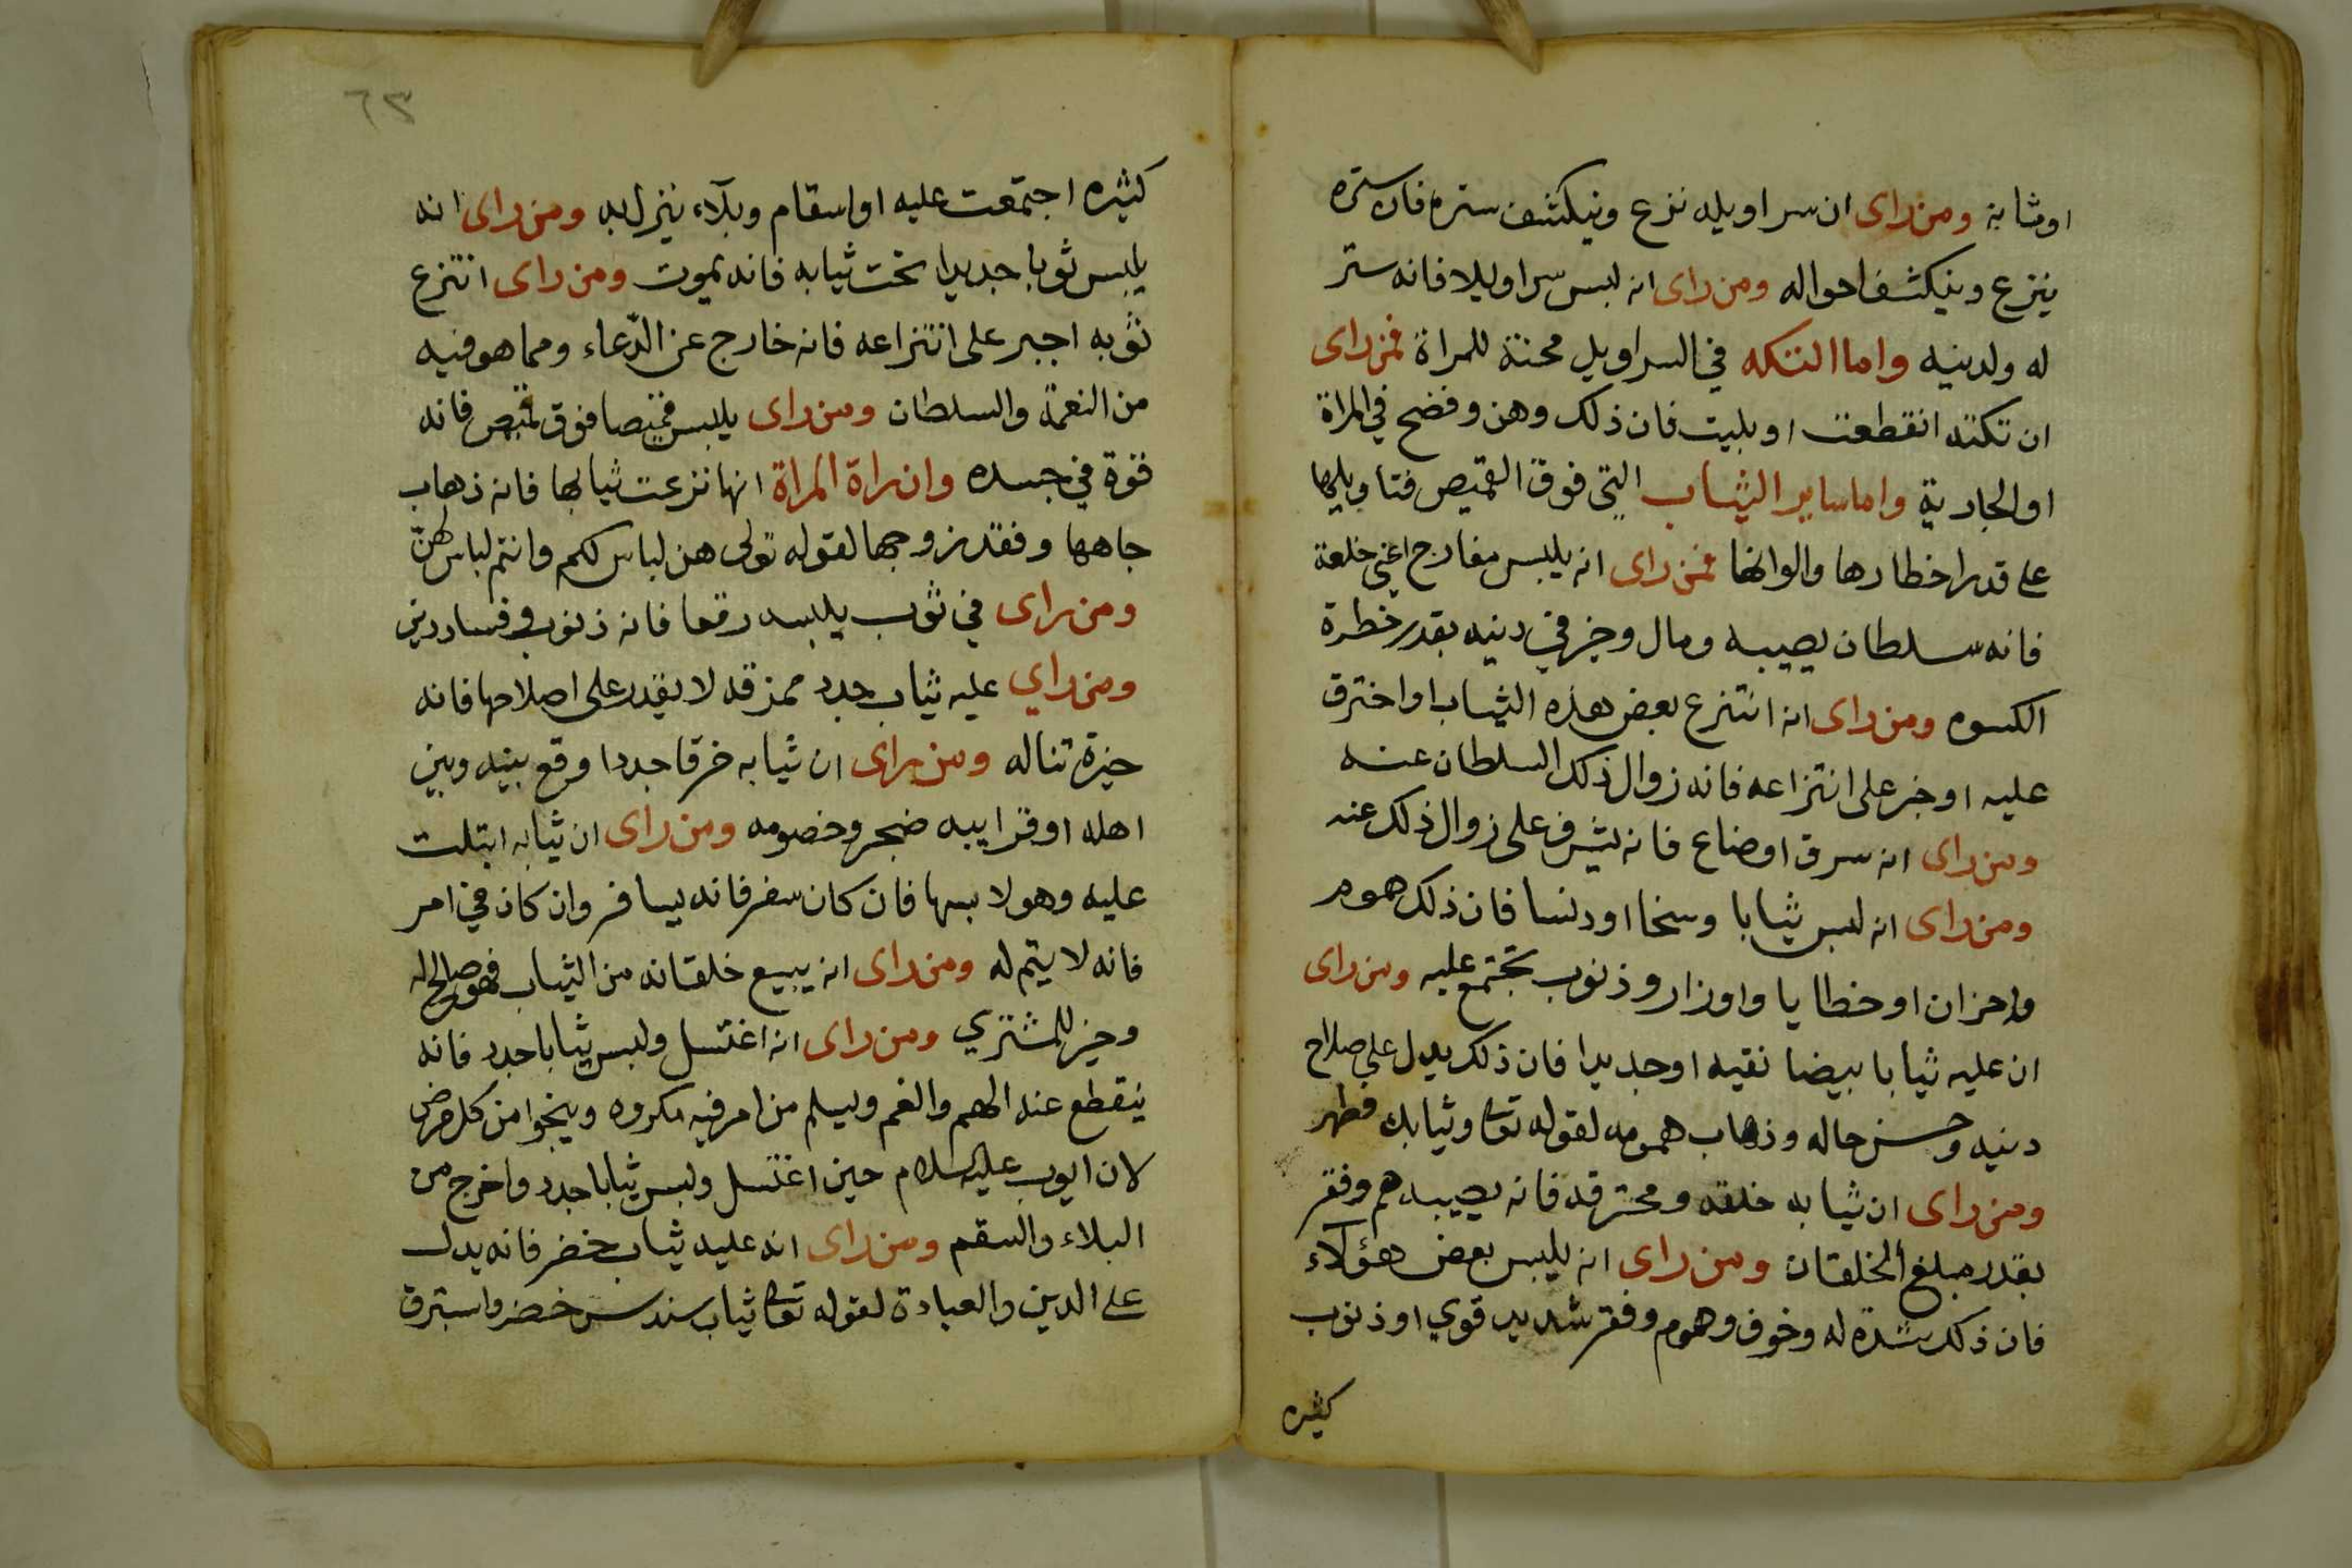 اوثنابه ومن راى ان سراويله نزع وينكشف ستره فان ستره
ينزع وينكشف احواله ومن راى انه لبس سراويلا فانه ستر
له ولدينه واما التكه في السراويل محنة للمراة فمن راى
ان تكته انقطعت او بليت فان ذلك وهن وفضح في المراة
او الجارية واما ساير الثياب التي فوق القميص فتاويلها
على قدر اخطارها والوانها فمن راى انه يلبس مفارج اعني خلعة
فانه سلطان يصيبه ومال وخير في دينه بقدر خطرة
الكسوه ومن راى انه انتزع بعض هذه الثياب او اخترق
عليه او جبر على انتزاعه فانه زوال ذلك السلطان عنه
ومن راى انه سرق او ضاع فانه يشرف على زوال ذلك عنه
ومن راى انه لبس ثيابا وسخا او دنسا فان ذلك هموم
واحزان او خطايا واوزار وذنوب تجتمع عليه ومن راى
ان عليه ثيابا بيضا نقيه او جديدا فان ذلك يدل على صلاح
دينه وحسن حاله وذهاب همومه لقوله تعالى وثيابك فطهر
ومن راى ان ثيابه خلقه ومحترقه فانه يصيبه هم وفقر
بقدر مبلغ الخلقان ومن راى انه يلبس بعض هؤلاء
فان ذلك شدة له وخوف وهموم وفقر شديد قوي او ذنوب
كثيره
٦٣
كثيره اجتمعت عليه او اسقام وبلآء ينزل به ومن راى انه
يلبس ثوبا جديدا تحت ثيابه فانه يموت ومن راى انتزع
ثوبه اجبر على انتزاعه فانه خارج عن الدعاء ومما هو فيه
من النعمة والسلطان ومن راى يلبس قميصا فوق قميص فانه
قوة في جسده وان راة المراة انها نزعت ثيابها فانه ذهاب
جاهها وفقد زوجها لقوله تعالى هن لباس لكم وانتم لباس لهن
ومن راى في ثوب يلبسه رقعا فانه ذنوب وفساد دين
ومن راي عليه ثياب جدد ممزقه لا يقدر على اصلاحها فانه
حيزة تناله ومن راى ان ثيابه خرقا جددا وقع بينه وبين
اهله او قرايبه ضجر وخصومه ومن راى ان ثيابه ابتلت
عليه وهو لابسها فان كان سفر فانه يسافر وان كان في امر
فانه لا يتم له ومن راى انه يبيع خلقانه من الثياب فهو صالح له
وخير للمشتري ومن راى انه اغتسل ولبس ثيابا جدد فانه
ينقطع عنه الهم والغم ويسلم من امر فيه مكروه وينجوا من كل مرض
لان ايوب عليه السلام حين اغتسل ولبس ثيابا جدد واخرج من
البلاء والسقم ومن راى انه عليه ثياب خضر فانه يدل
على الدين والعبادة لقوله تعالى ثياب سندس خضر واستبرق